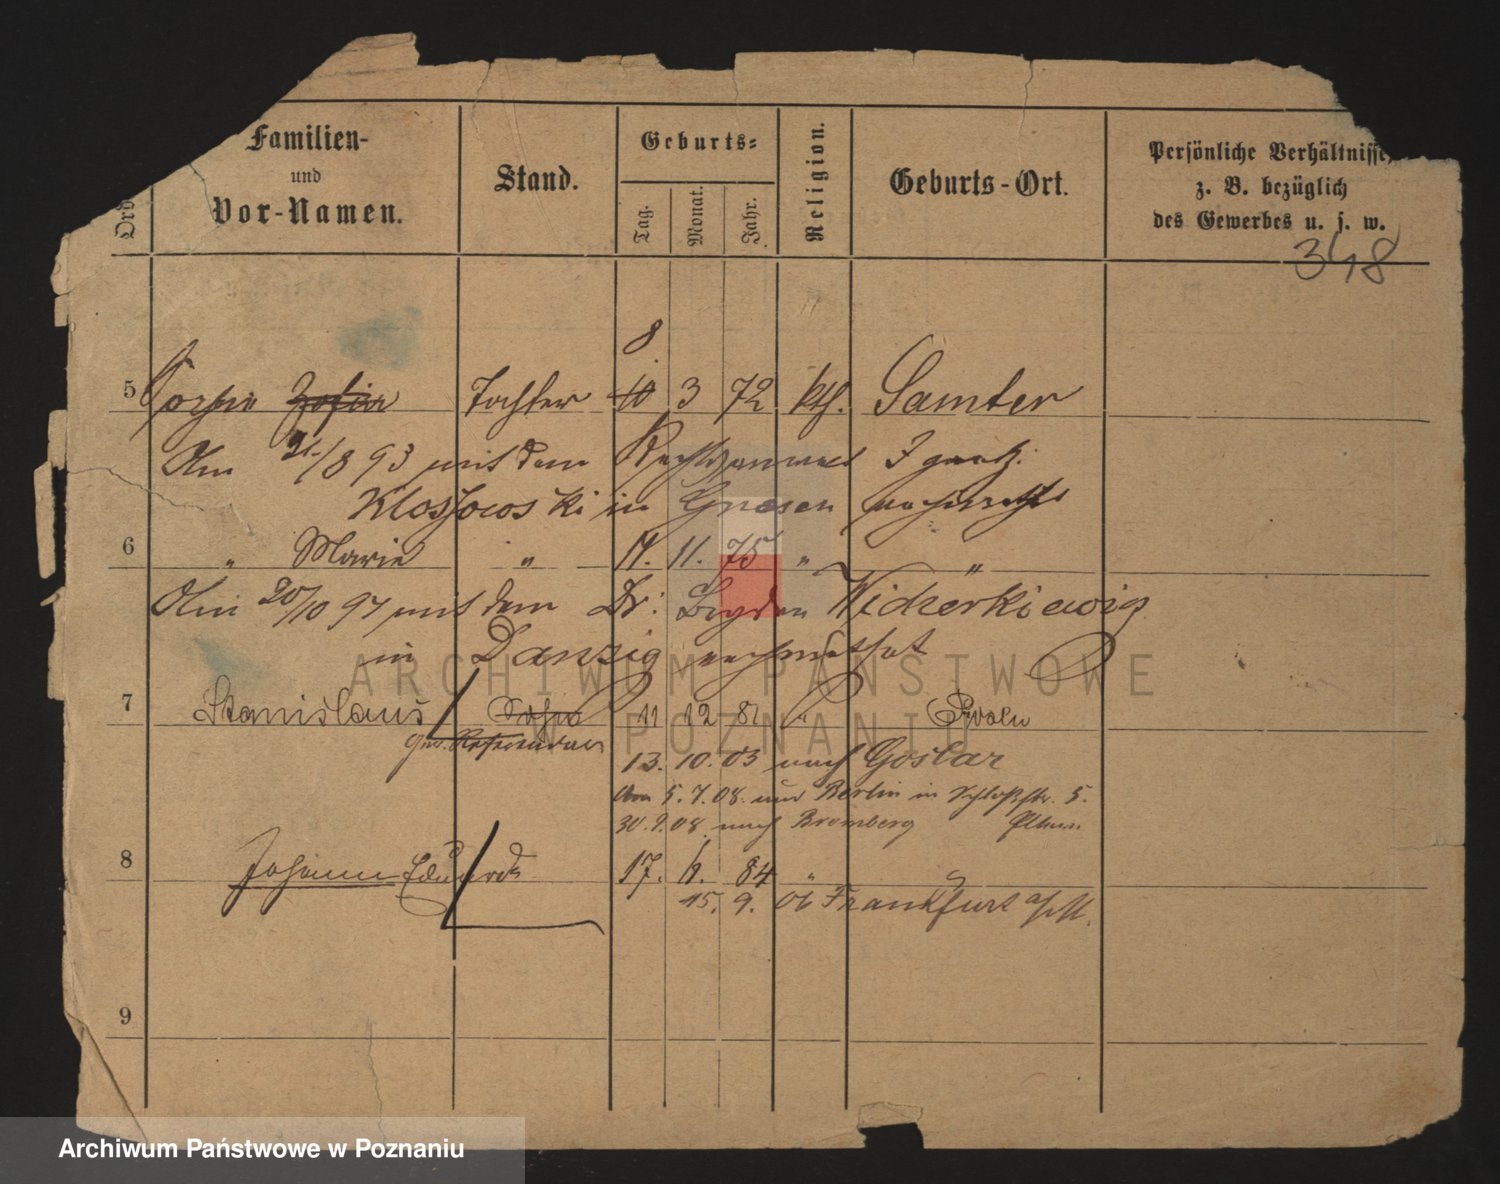 Ord
Familien-
und
Vor-Namen.
Stand.
Geburts-
Tag.
Monat.
Jahr.
Religion.
Geburts-Ort.
Persönliche Verhältnisse,
z. B. bezüglich
des Gewerbes u. s. w.
348
8
5 Sophie Zofia Tochter 10 3 72 kth. Samter
Am 21/8 93 mit dem Rechtsanwalt Ignatz
Klossowski in Gnesen verheirathet
6 " Marie " 11. 75 " "
Am 20/10 97 mit dem Dr: Wicherkiewicz
in Danzig verheirathet
7 Stanislaus Sohn 11 12 81 " Posen
Referendar
13. 10. 03 nach Goslar
Am 5. 7. 08. Berlin in Schloßstr. 5.
30. 9. 08 nach Bromberg
8 Johann Eduard 17. 6. 84 "
15. 9. 06 Frankfurt a/M.
9
ARCHIWUM PAŃSTWOWE
W POZNANIU
Archiwum Państwowe w Poznaniu